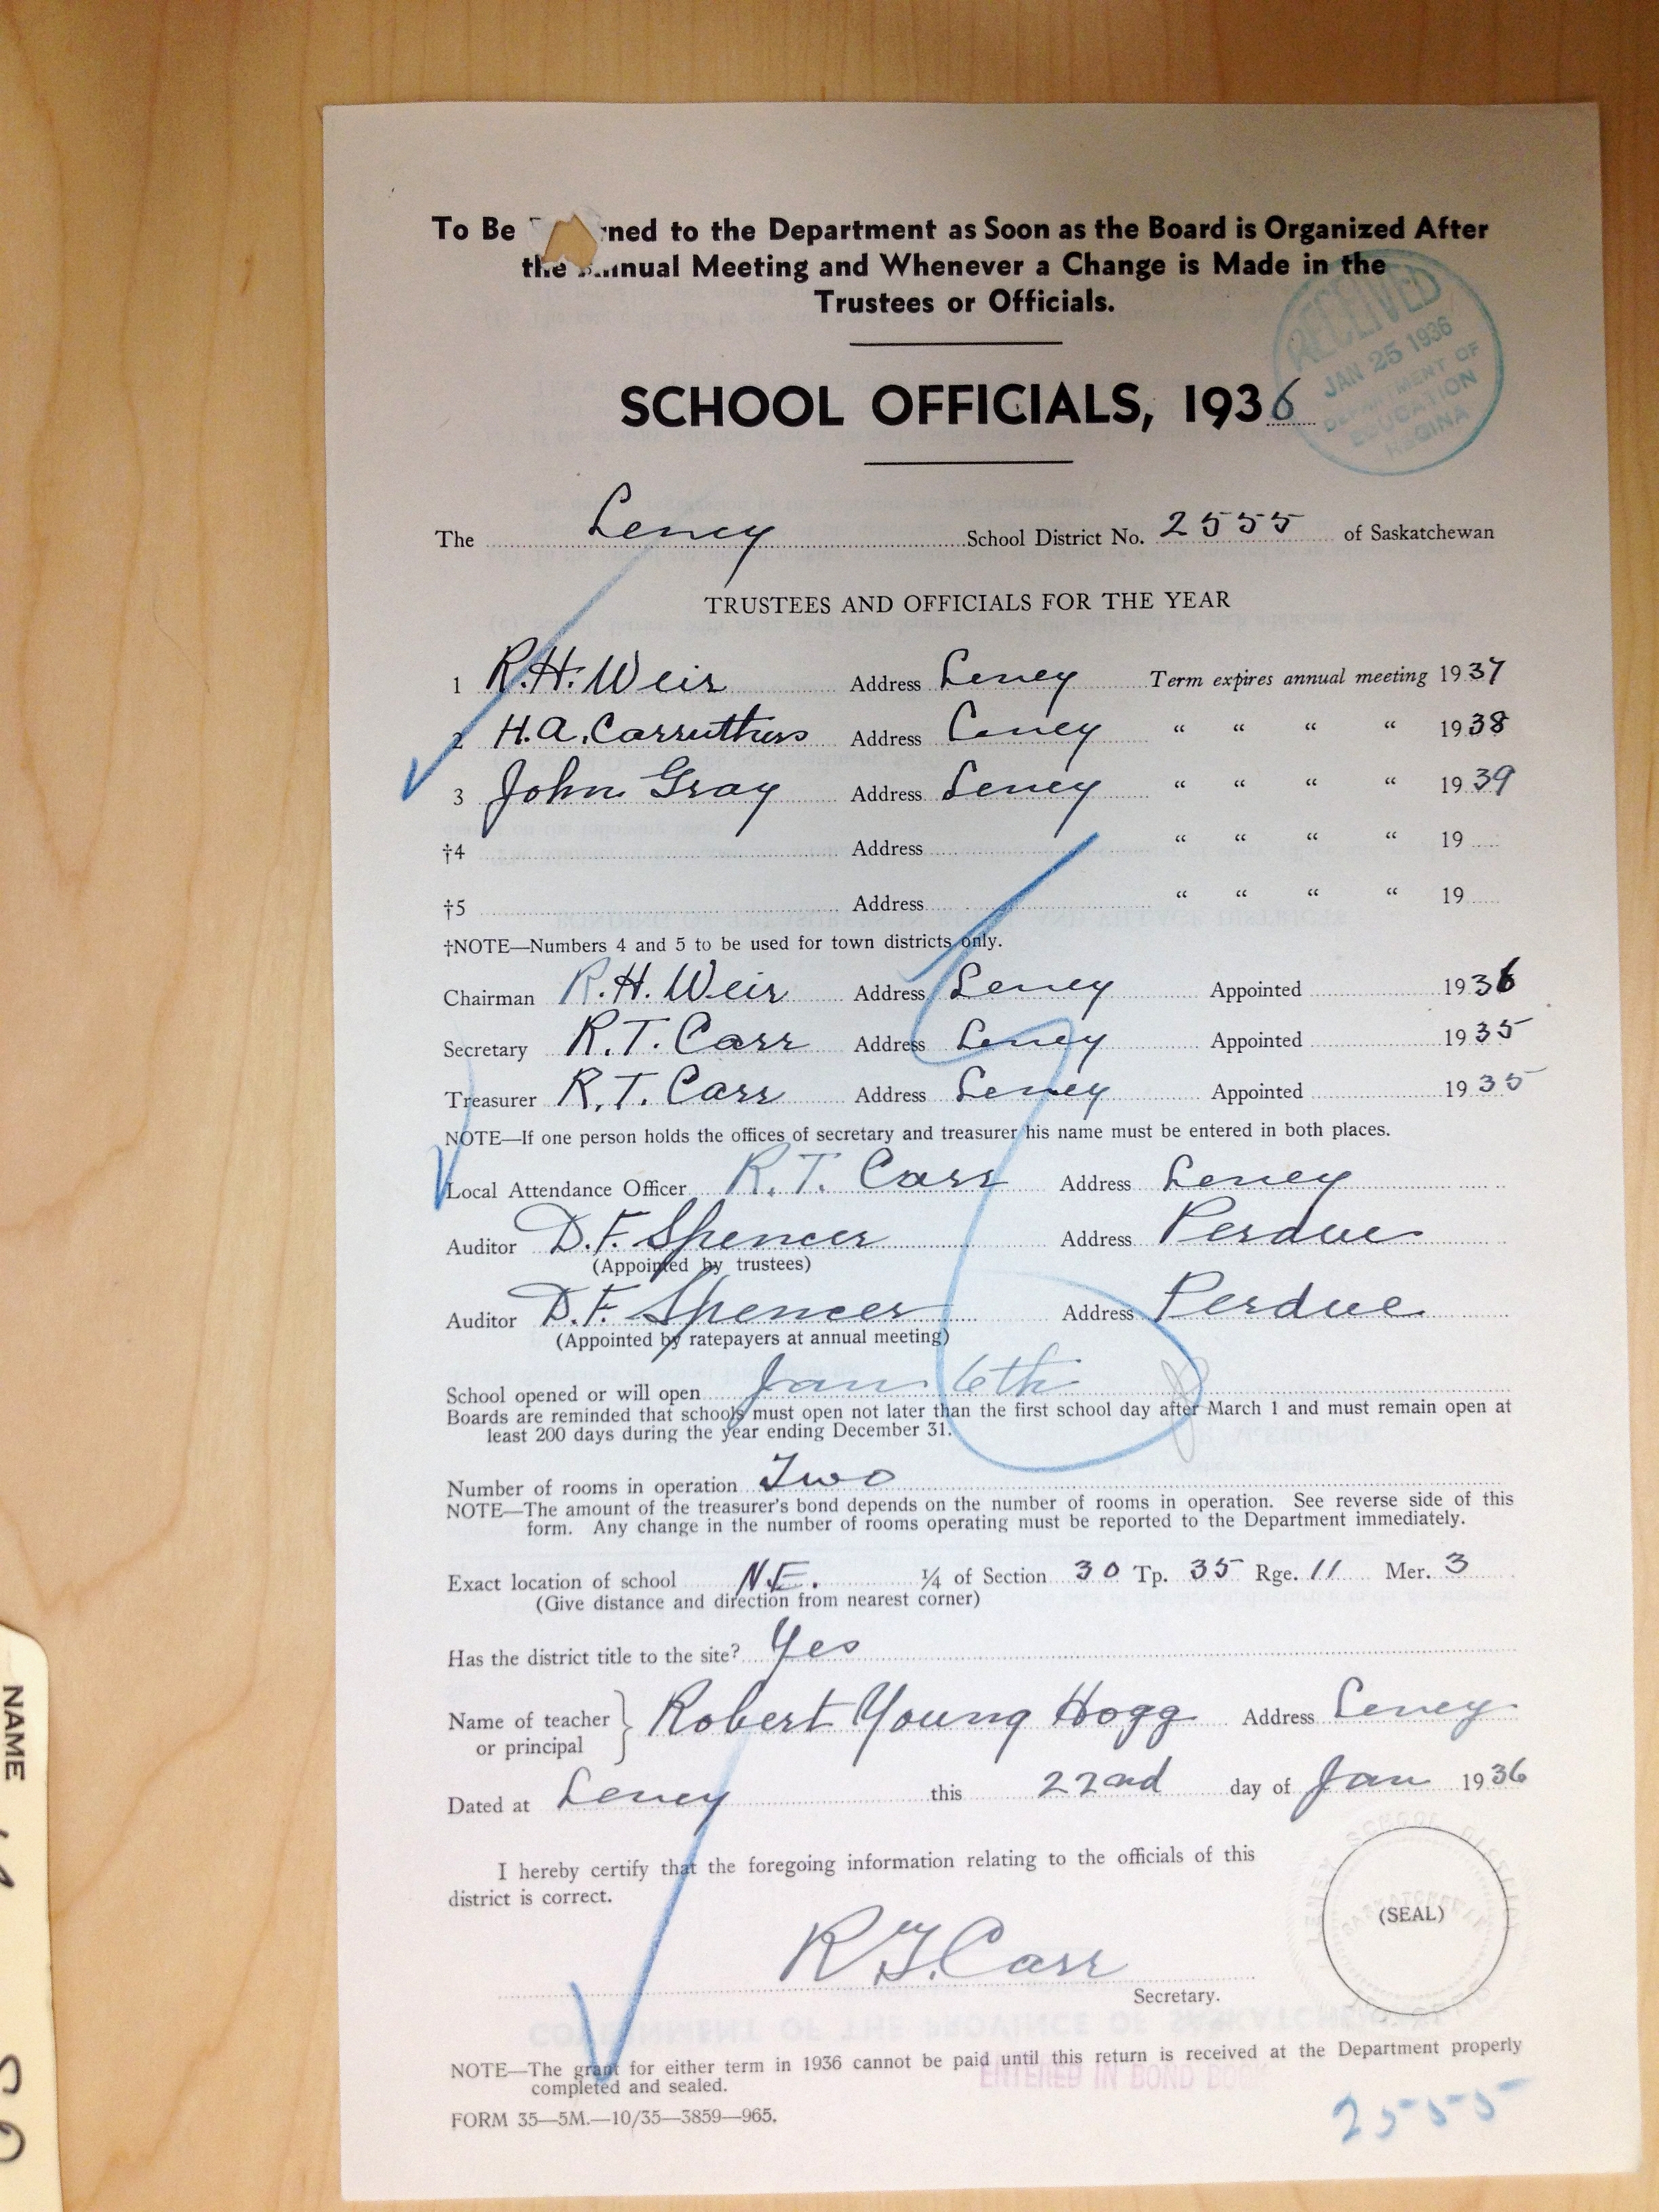 To Be rned to the Department as Soon as the Board is Organized After
the Annual Meeting and Whenever a Change is Made in the
Trustees or Officials.
RECEIVED
JAN 25 1936
DEPARTMENT OF
EDUCATION
REGINA
SCHOOL OFFICIALS, 1936
The Leney School District No. 2555 of Saskatchewan
TRUSTEES AND OFFICIALS FOR THE YEAR
1 R.H. Weir Address Leney Term expires annual meeting 1937
2 H.A. Carruthers Address Leney " " " " 1938
3 John Gray Address Leney " " " " 1939
†4 Address " " " " 19
†5 Address " " " " 19
†NOTE—Numbers 4 and 5 to be used for town districts only.
Chairman R.H. Weir Address Leney Appointed 1936
Secretary R.T. Carr Address Leney Appointed 1935
Treasurer R.T. Carr Address Leney Appointed 1935
NOTE—If one person holds the offices of secretary and treasurer his name must be entered in both places.
Local Attendance Officer R.T. Carr Address Leney
Auditor D.F. Spencer Address Perdue
(Appointed by trustees)
Auditor D.F. Spencer Address Perdue
(Appointed by ratepayers at annual meeting)
School opened or will open Jan 6th
Boards are reminded that schools must open not later than the first school day after March 1 and must remain open at
least 200 days during the year ending December 31.
Number of rooms in operation Two
NOTE—The amount of the treasurer's bond depends on the number of rooms in operation. See reverse side of this
form. Any change in the number of rooms operating must be reported to the Department immediately.
Exact location of school N.E. ¼ of Section 30 Tp. 35 Rge. 11 Mer. 3
(Give distance and direction from nearest corner)
Has the district title to the site? Yes
Name of teacher or principal } Robert Young Hogg Address Leney
Dated at Leney this 22nd day of Jan 1936
I hereby certify that the foregoing information relating to the officials of this
district is correct.
(SEAL)
R.T. Carr
Secretary.
NOTE—The grant for either term in 1936 cannot be paid until this return is received at the Department properly
completed and sealed.
ENTERED IN BOND BOOK
FORM 35—5M.—10/35—3859—965.
2555
NAME